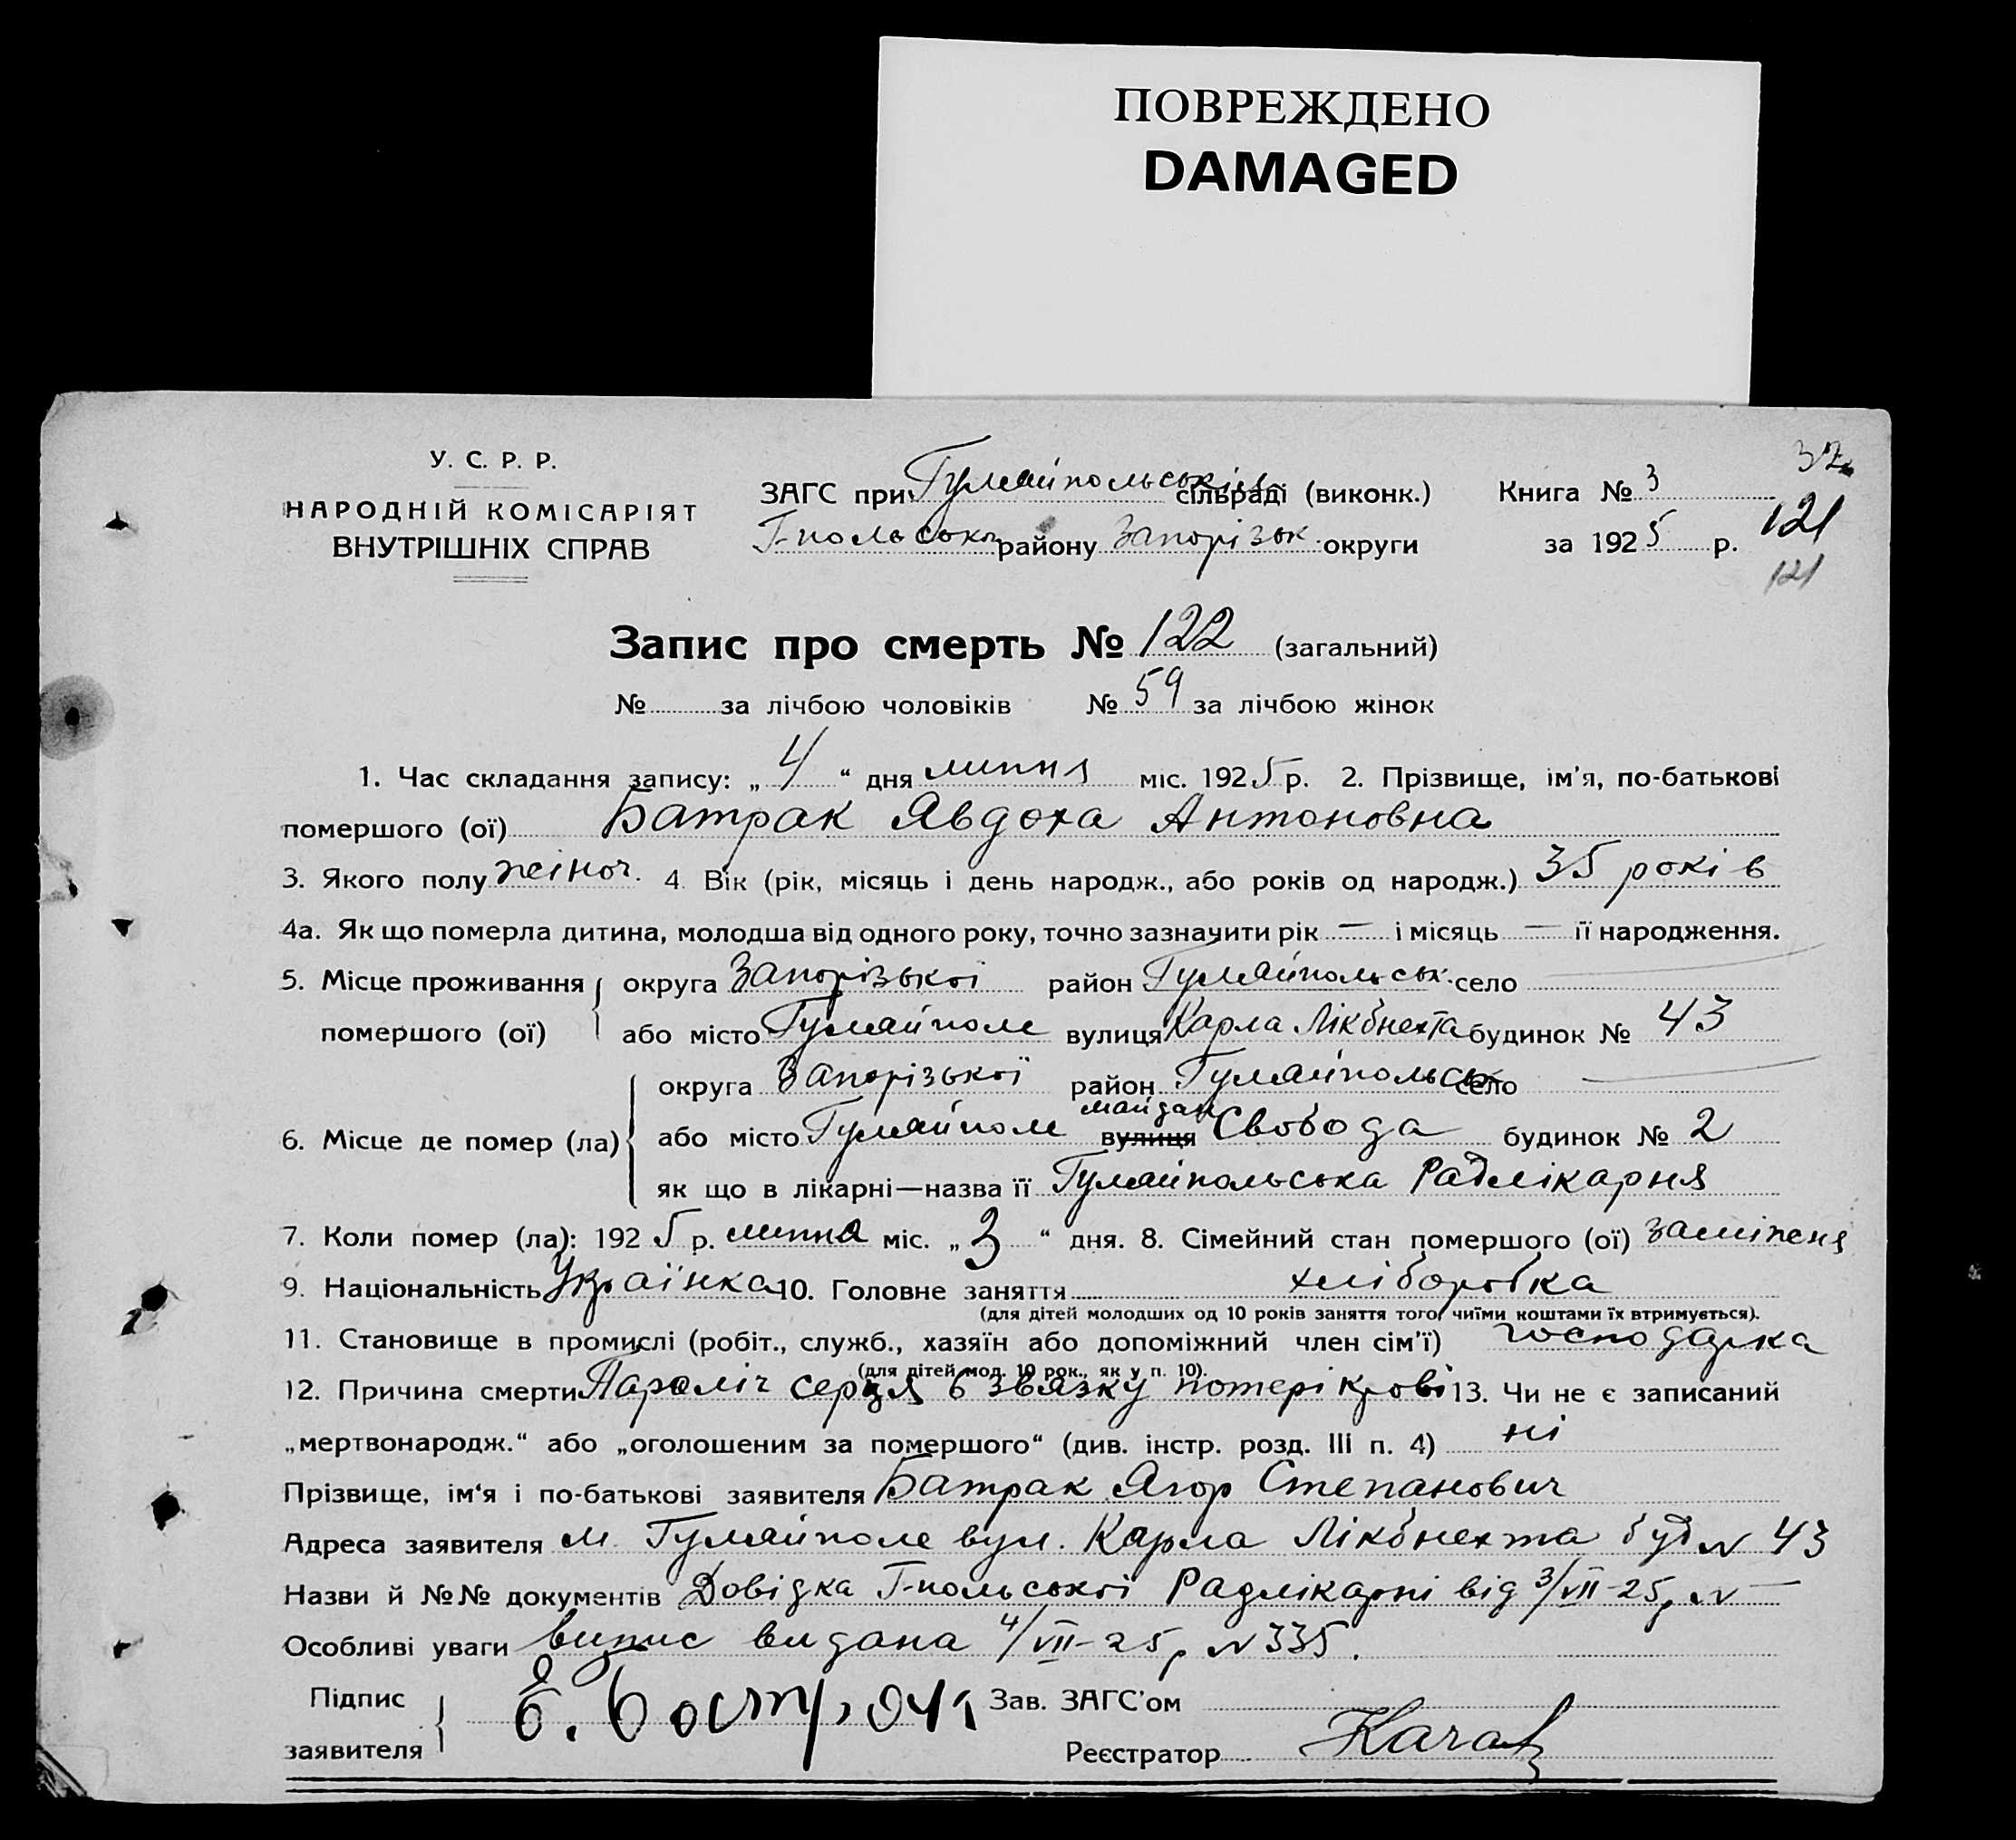 ПОВРЕЖДЕНО
DAMAGED
У. С. Р. Р.
НАРОДНІЙ КОМІСАРІЯТ
ВНУТРІШНІХ СПРАВ
ЗАГС при Гуляйпольській сільраді (виконк.)
Г-польськ району Запорізьк. округи
Книга № 3
за 1925 р.
37
121
121
Запис про смерть № 122 (загальний)
№ за лічбою чоловіків № 59 за лічбою жінок
1. Час складання запису: „4“ дня липня міс. 1925 р. 2. Прізвище, ім'я, по-батькові
помершого (ої) Батрак Явдоха Антоновна
3. Якого полу жіноч. 4. Вік (рік, місяць і день народж., або років од народж.) 35 років
4а. Як що померла дитина, молодша від одного року, точно зазначити рік — і місяць — її народження.
5. Місце проживання помершого (ої) округа Запорізької район Гуляйпольськ. село —
або місто Гуляйполе вулиця Карла Лікбнехта будинок № 43
6. Місце де помер (ла) округа Запорізької район Гуляйпольськ село —
або місто Гуляйполе вулиця майдан Свобода будинок № 2
як що в лікарні—назва її Гуляйпольська Радлікарня
7. Коли помер (ла): 1925 р. липня міс. „3“ дня. 8. Сімейний стан помершого (ої) заміжня
9. Національність Українка 10. Головне заняття хліборобка
(для дітей молодших од 10 років заняття того, чиїми коштами їх втримується).
11. Становище в промислі (робіт., служб., хазяїн або допоміжний член сім'ї) господарка
(для дітей мол. 10 рок., як у п. 10).
12. Причина смерти Параліч серця в звязку потері крові 13. Чи не є записаний
„мертвонародж.“ або „оголошеним за помершого“ (див. інстр. розд. III п. 4) ні
Прізвище, ім'я і по-батькові заявителя Батрак Ягор Степанович
Адреса заявителя м. Гуляйполе вул. Карла Лікбнехта буд N 43
Назви й №№ документів Довідка Г-польської Радлікарні від 3/VII-25р N —
Особливі уваги випис видана 4/VII-25р N 335.
Підпис заявителя
Зав. ЗАГС'ом
Реєстратор